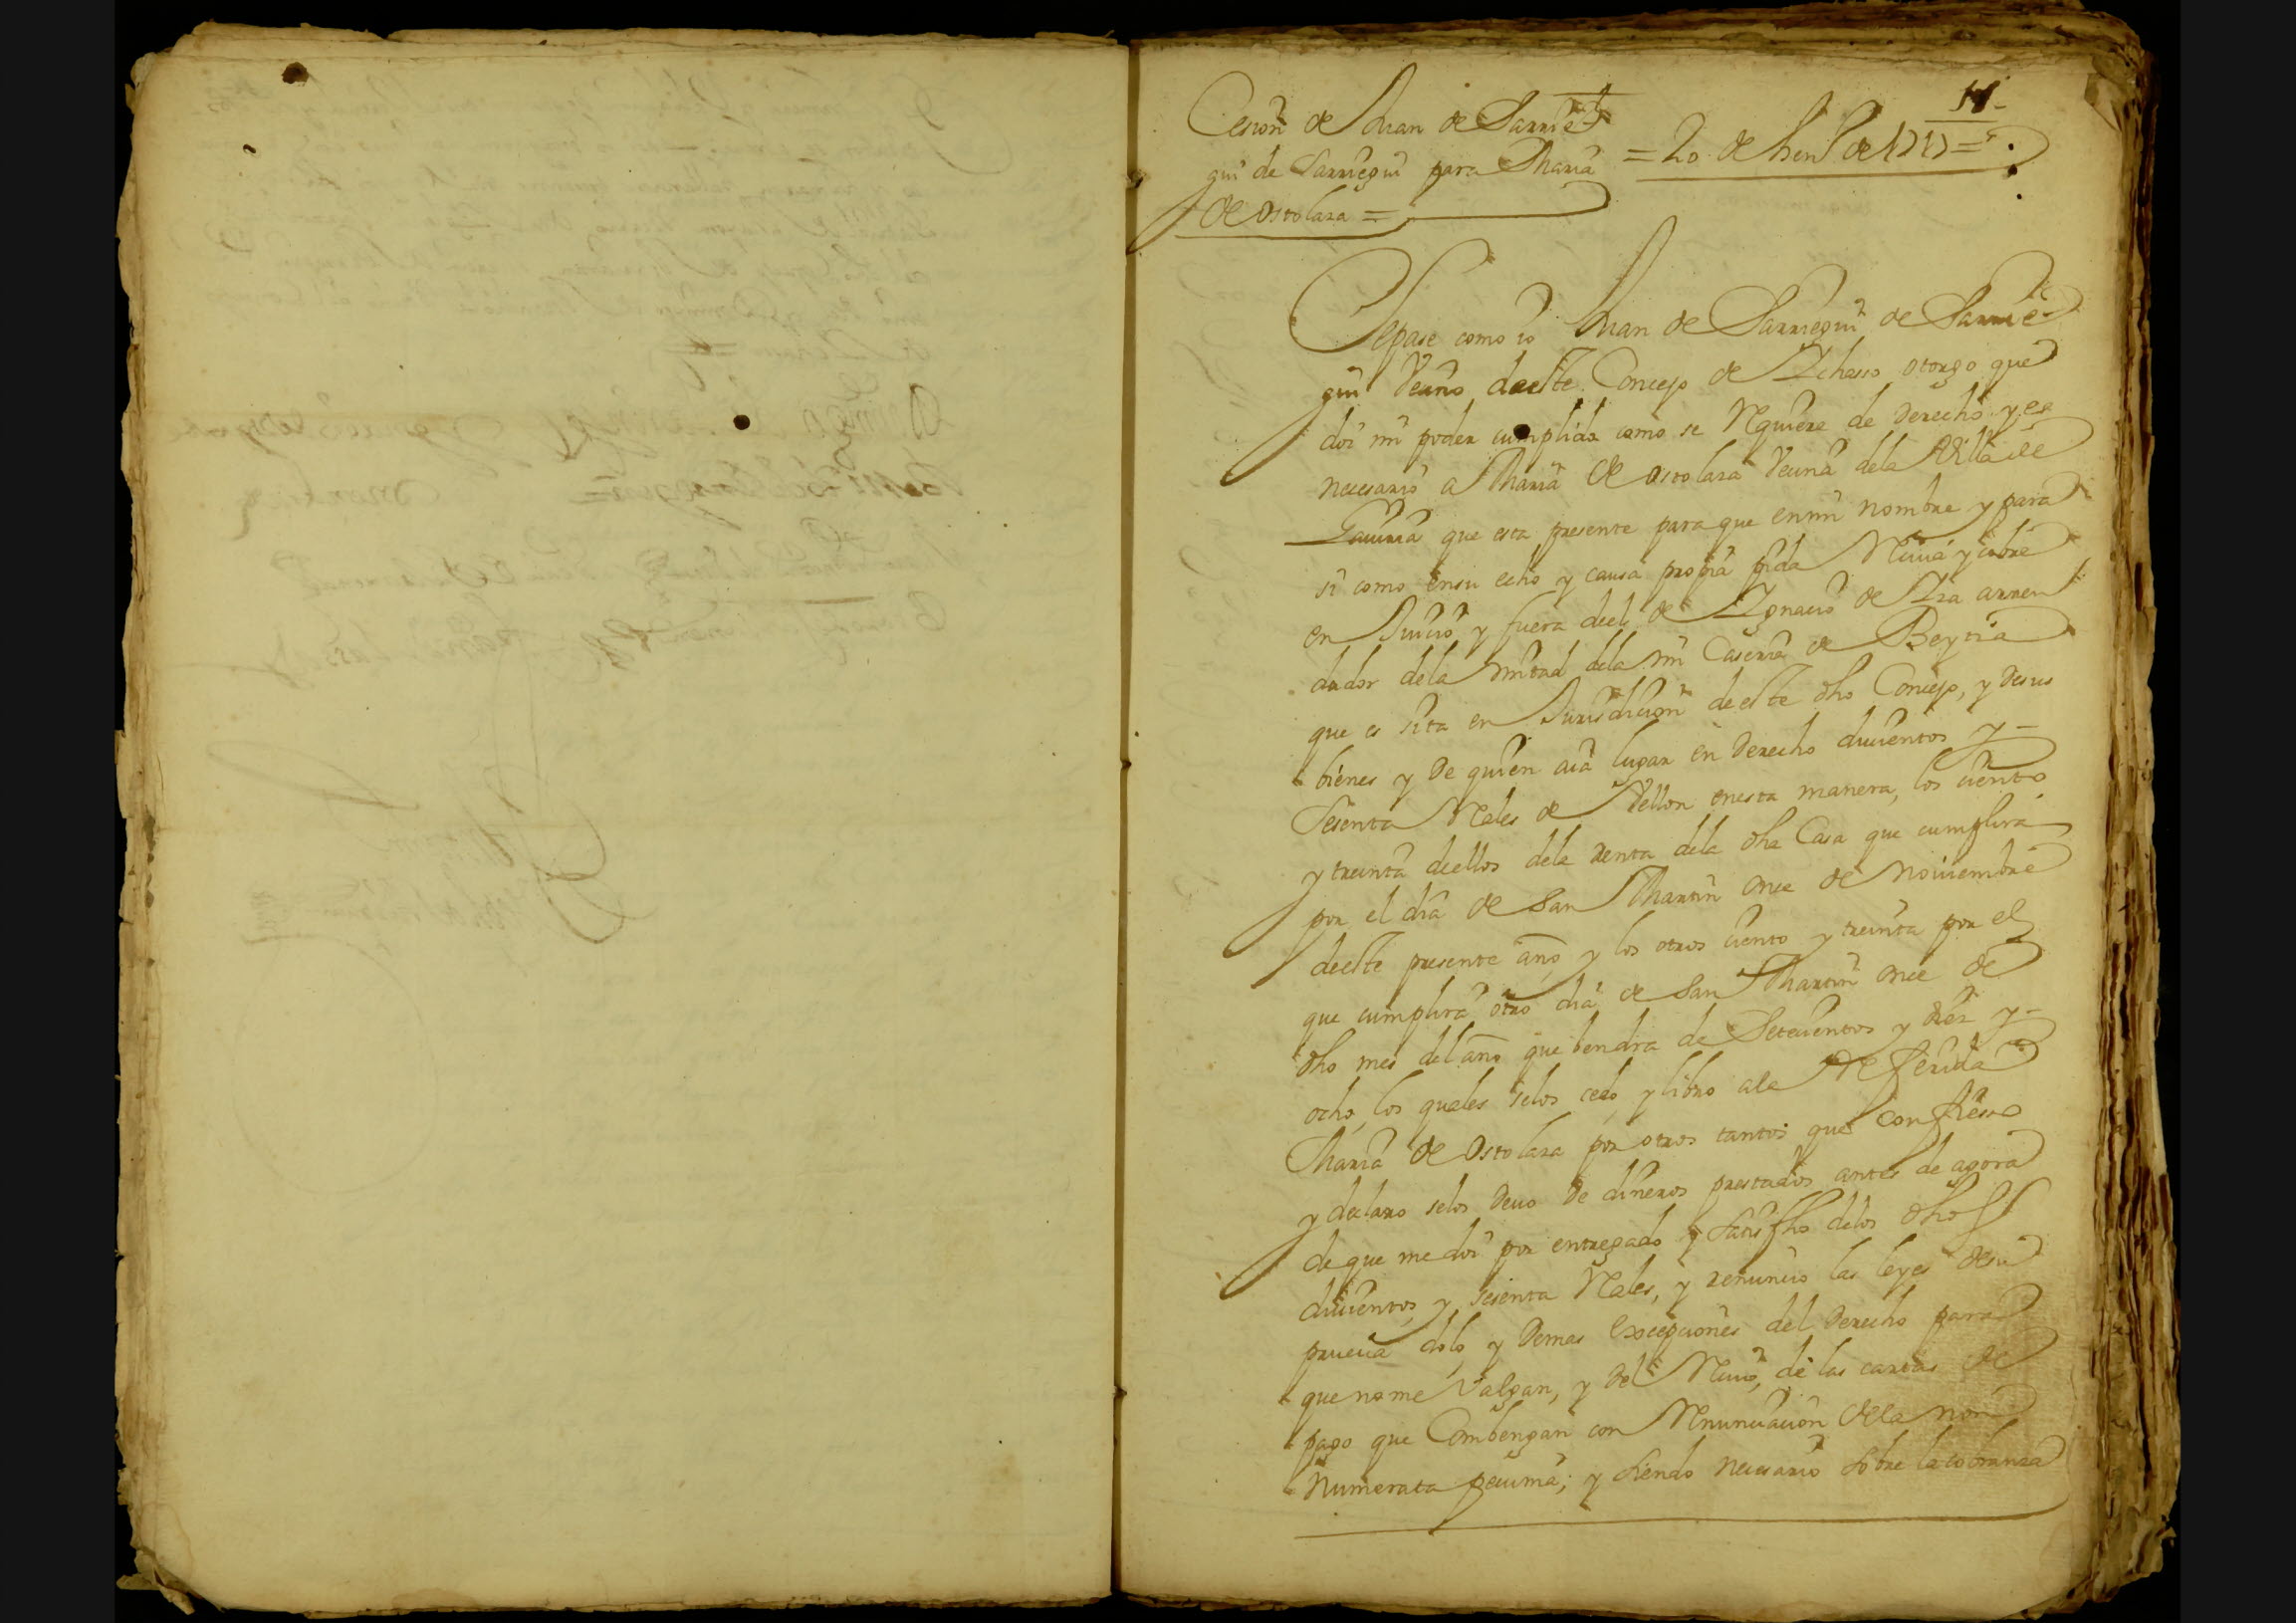 Cesion de Juan de Sarrie
gui de Sarriegui para Maria
de Ostolaza =
= 20 de hen.º de 1717 =
Sepase como io Juan de Sarriegui de Sarrie-
gui vecino de este Concejo de Ichasso otorgo que
doi mi poder cumplido como se Requiere de derecho y es
necesario a Maria de Ostolaza vecina dela Villa de
Gauiria que esta presente para que en mi nombre y para
si como en su echo y causa propia pida Reciua y cobre
en Juicio y fuera deel de Ignacio de Aza arren
dador dela mitad dela mi Caseria de Beytia
que es sita en Jurisdicion de este dho Concejo, y de sus
bienes y de quien aia lugar en derecho ducientos y
Sesenta Reales de Vellon en esta manera, los ciento
y treinta de ellos dela renta dela dha Casa que cumplira
por el dia de San Martin once de Nouiembre
de este presente año, y los otros ciento y treinta por el
que cumplira otro dia de San Martin once de
dho mes del año que bendra de Setecientos y diez y
ocho, los quales selos cedo y libro ala Referida
Maria de Ostolaza por otros tantos que confieso
y declaro selos deuo de dineros prestados antes de agora
de que me doi por entregado y satisfho delos dhos
ducientos y sesenta Reales, y renuncio las leyes de su
prueua dolo y demas excepciones del derecho para
que no me Valgan, y del Reciuo, de las cartas de
pago que Combengan con Renunciacion dela non
Numerata pecunia; y siendo necesario sobre la cobranza